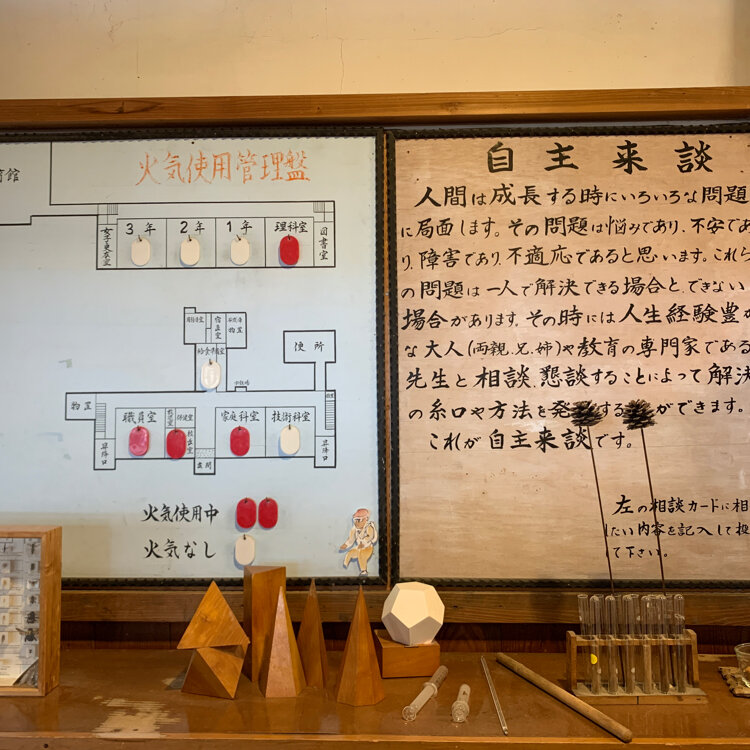 育館
火気使用管理盤
女子更衣室
3年
2年
1年
理科室
図書室
宿直室
物置
給食準備室
便所
物置
職員室
家庭科室
技術科室
昇降口
玄関
昇降口
火気使用中
火気なし
自主来談
人間は成長する時にいろいろな問題
に局面します。その問題は悩みであり、不安であ
り、障害であり、不適応であると思います。これら
の問題は一人で解決できる場合と、できない
場合があります。その時には人生経験豊か
な大人(両親、兄、姉)や教育の専門家である
先生と相談、懇談することによって解決
の糸口や方法を発する ができます。
これが自主来談です。
左の相談カードに相
たい内容を記入して投
て下さい。